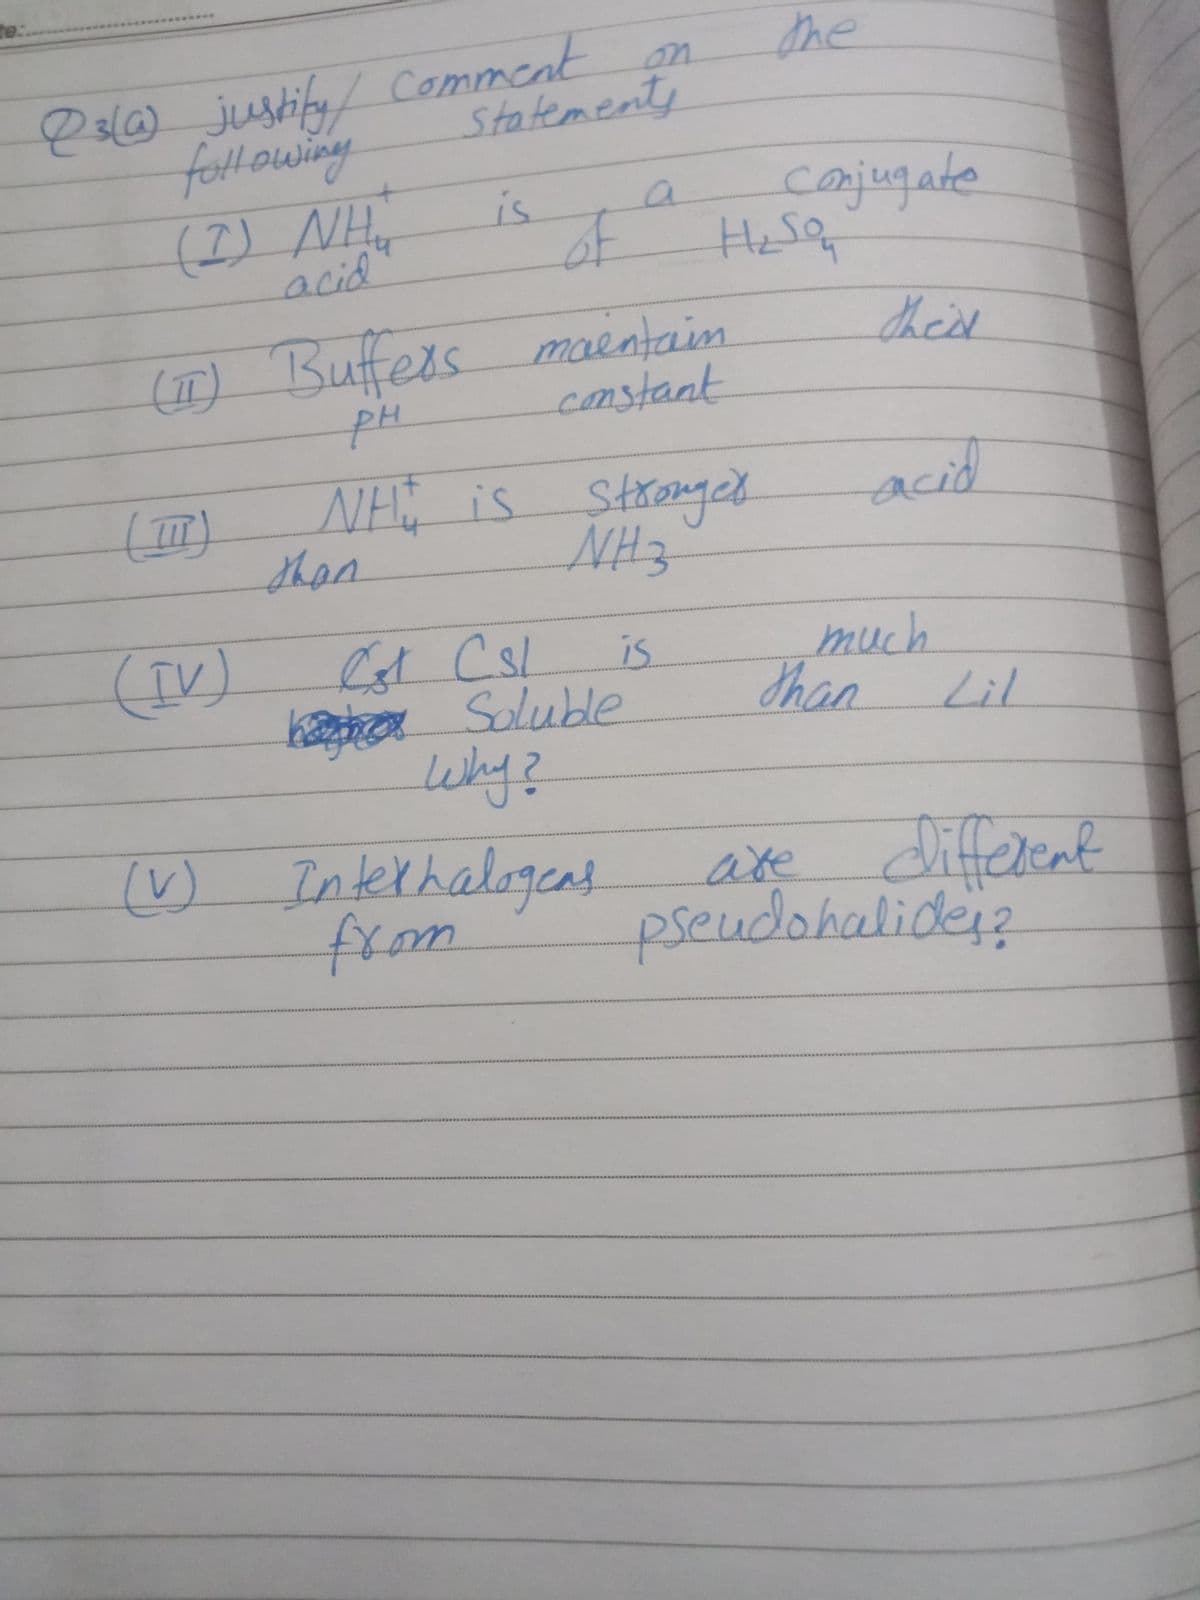 te:
Q3(a) justify/ Comment on the
following Statements
(I) NH4+ is a Conjugate
acid of H2SO4
(II) Buffers maentain their
pH constant
(III) NH4+ is Stronger acid
than NH3
(IV) CsI is much
Soluble than LiI
Why?
(V) Interhalogens are different
from pseudohalides?